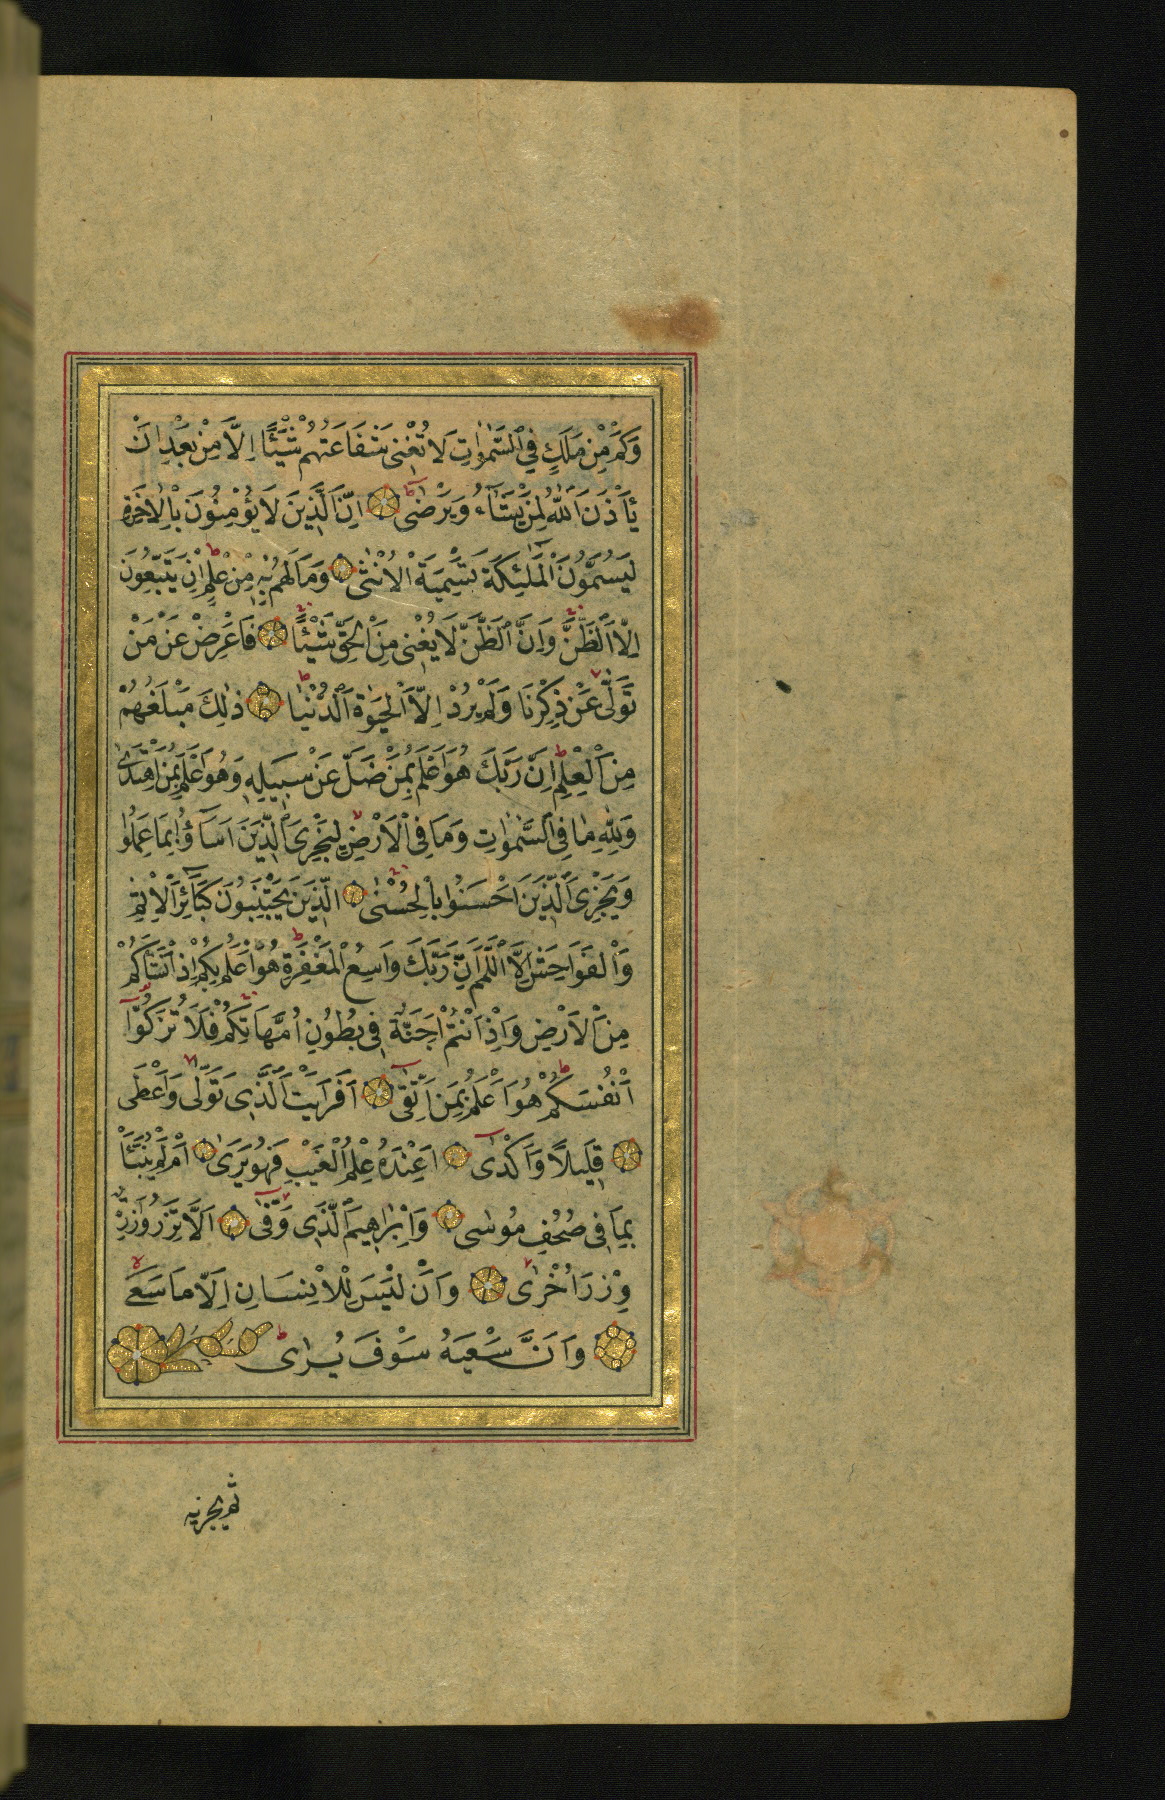 وَكَمْ مِنْ مَلَكٍ فِي السَّمٰوَاتِ لَا تُغْنٖي شَفَاعَتُهُمْ شَيْـًٔا اِلَّا مِنْ بَعْدِ اَنْ
يَأْذَنَ اللّٰهُ لِمَنْ يَشَٓاءُ وَيَرْضٰى اِنَّ الَّذٖينَ لَا يُؤْمِنُونَ بِالْاٰخِرَةِ
لَيُسَمُّونَ الْمَلٰٓئِكَةَ تَسْمِيَةَ الْاُنْثٰى وَمَا لَهُمْ بِهٖ مِنْ عِلْمٍ اِنْ يَتَّبِعُونَ
اِلَّا الظَّنَّ وَاِنَّ الظَّنَّ لَا يُغْنٖي مِنَ الْحَقِّ شَيْـًٔا فَاَعْرِضْ عَنْ مَنْ
تَوَلّٰى عَنْ ذِكْرِنَا وَلَمْ يُرِدْ اِلَّا الْحَيٰوةَ الدُّنْيَا ذٰلِكَ مَبْلَغُهُمْ
مِنَ الْعِلْمِ اِنَّ رَبَّكَ هُوَ اَعْلَمُ بِمَنْ ضَلَّ عَنْ سَبٖيلِهٖ وَهُوَ اَعْلَمُ بِمَنِ اهْتَدٰى
وَلِلّٰهِ مَا فِي السَّمٰوَاتِ وَمَا فِي الْاَرْضِ لِيَجْزِيَ الَّذٖينَ اَسَٓاؤُا بِمَا عَمِلُوا
وَيَجْزِيَ الَّذٖينَ اَحْسَنُوا بِالْحُسْنٰى الَّذٖينَ يَجْتَنِبُونَ كَبَٓائِرَ الْاِثْمِ
وَالْفَوَاحِشَ اِلَّا اللَّمَمَ اِنَّ رَبَّكَ وَاسِعُ الْمَغْفِرَةِ هُوَ اَعْلَمُ بِكُمْ اِذْ اَنْشَاَكُمْ
مِنَ الْاَرْضِ وَاِذْ اَنْتُمْ اَجِنَّةٌ فٖي بُطُونِ اُمَّهَاتِكُمْ فَلَا تُزَكُّٓوا
اَنْفُسَكُمْ هُوَ اَعْلَمُ بِمَنِ اتَّقٰى اَفَرَاَيْتَ الَّذٖي تَوَلّٰى وَاَعْطٰى
قَلٖيلًا وَاَكْدٰى اَعِنْدَهُ عِلْمُ الْغَيْبِ فَهُوَ يَرٰى اَمْ لَمْ يُنَبَّأْ
بِمَا فٖي صُحُفِ مُوسٰى وَاِبْرٰهٖيمَ الَّذٖي وَفّٰى اَلَّا تَزِرُ وَازِرَةٌ
وِزْرَ اُخْرٰى وَاَنْ لَيْسَ لِلْاِنْسَانِ اِلَّا مَا سَعٰى
وَاَنَّ سَعْيَهُ سَوْفَ يُرٰى
ثم يجزيه